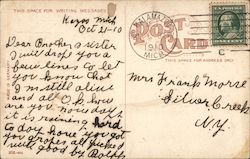 THIS SPACE FOR WRITING MESSAGES
Mich
Oct 21-10
Dear Brother & sister
I will drop you a
few lines to let
you know that
I m still alive
and all O.K. how
are you now days
it is raining hard
to day hope you got
you grapes all picked
will good by Ralph
POST
CARD
MICH
THIS SPACE FOR ADDRESS ONLY
Mrs Frank Morse
Silver Creek
N.Y